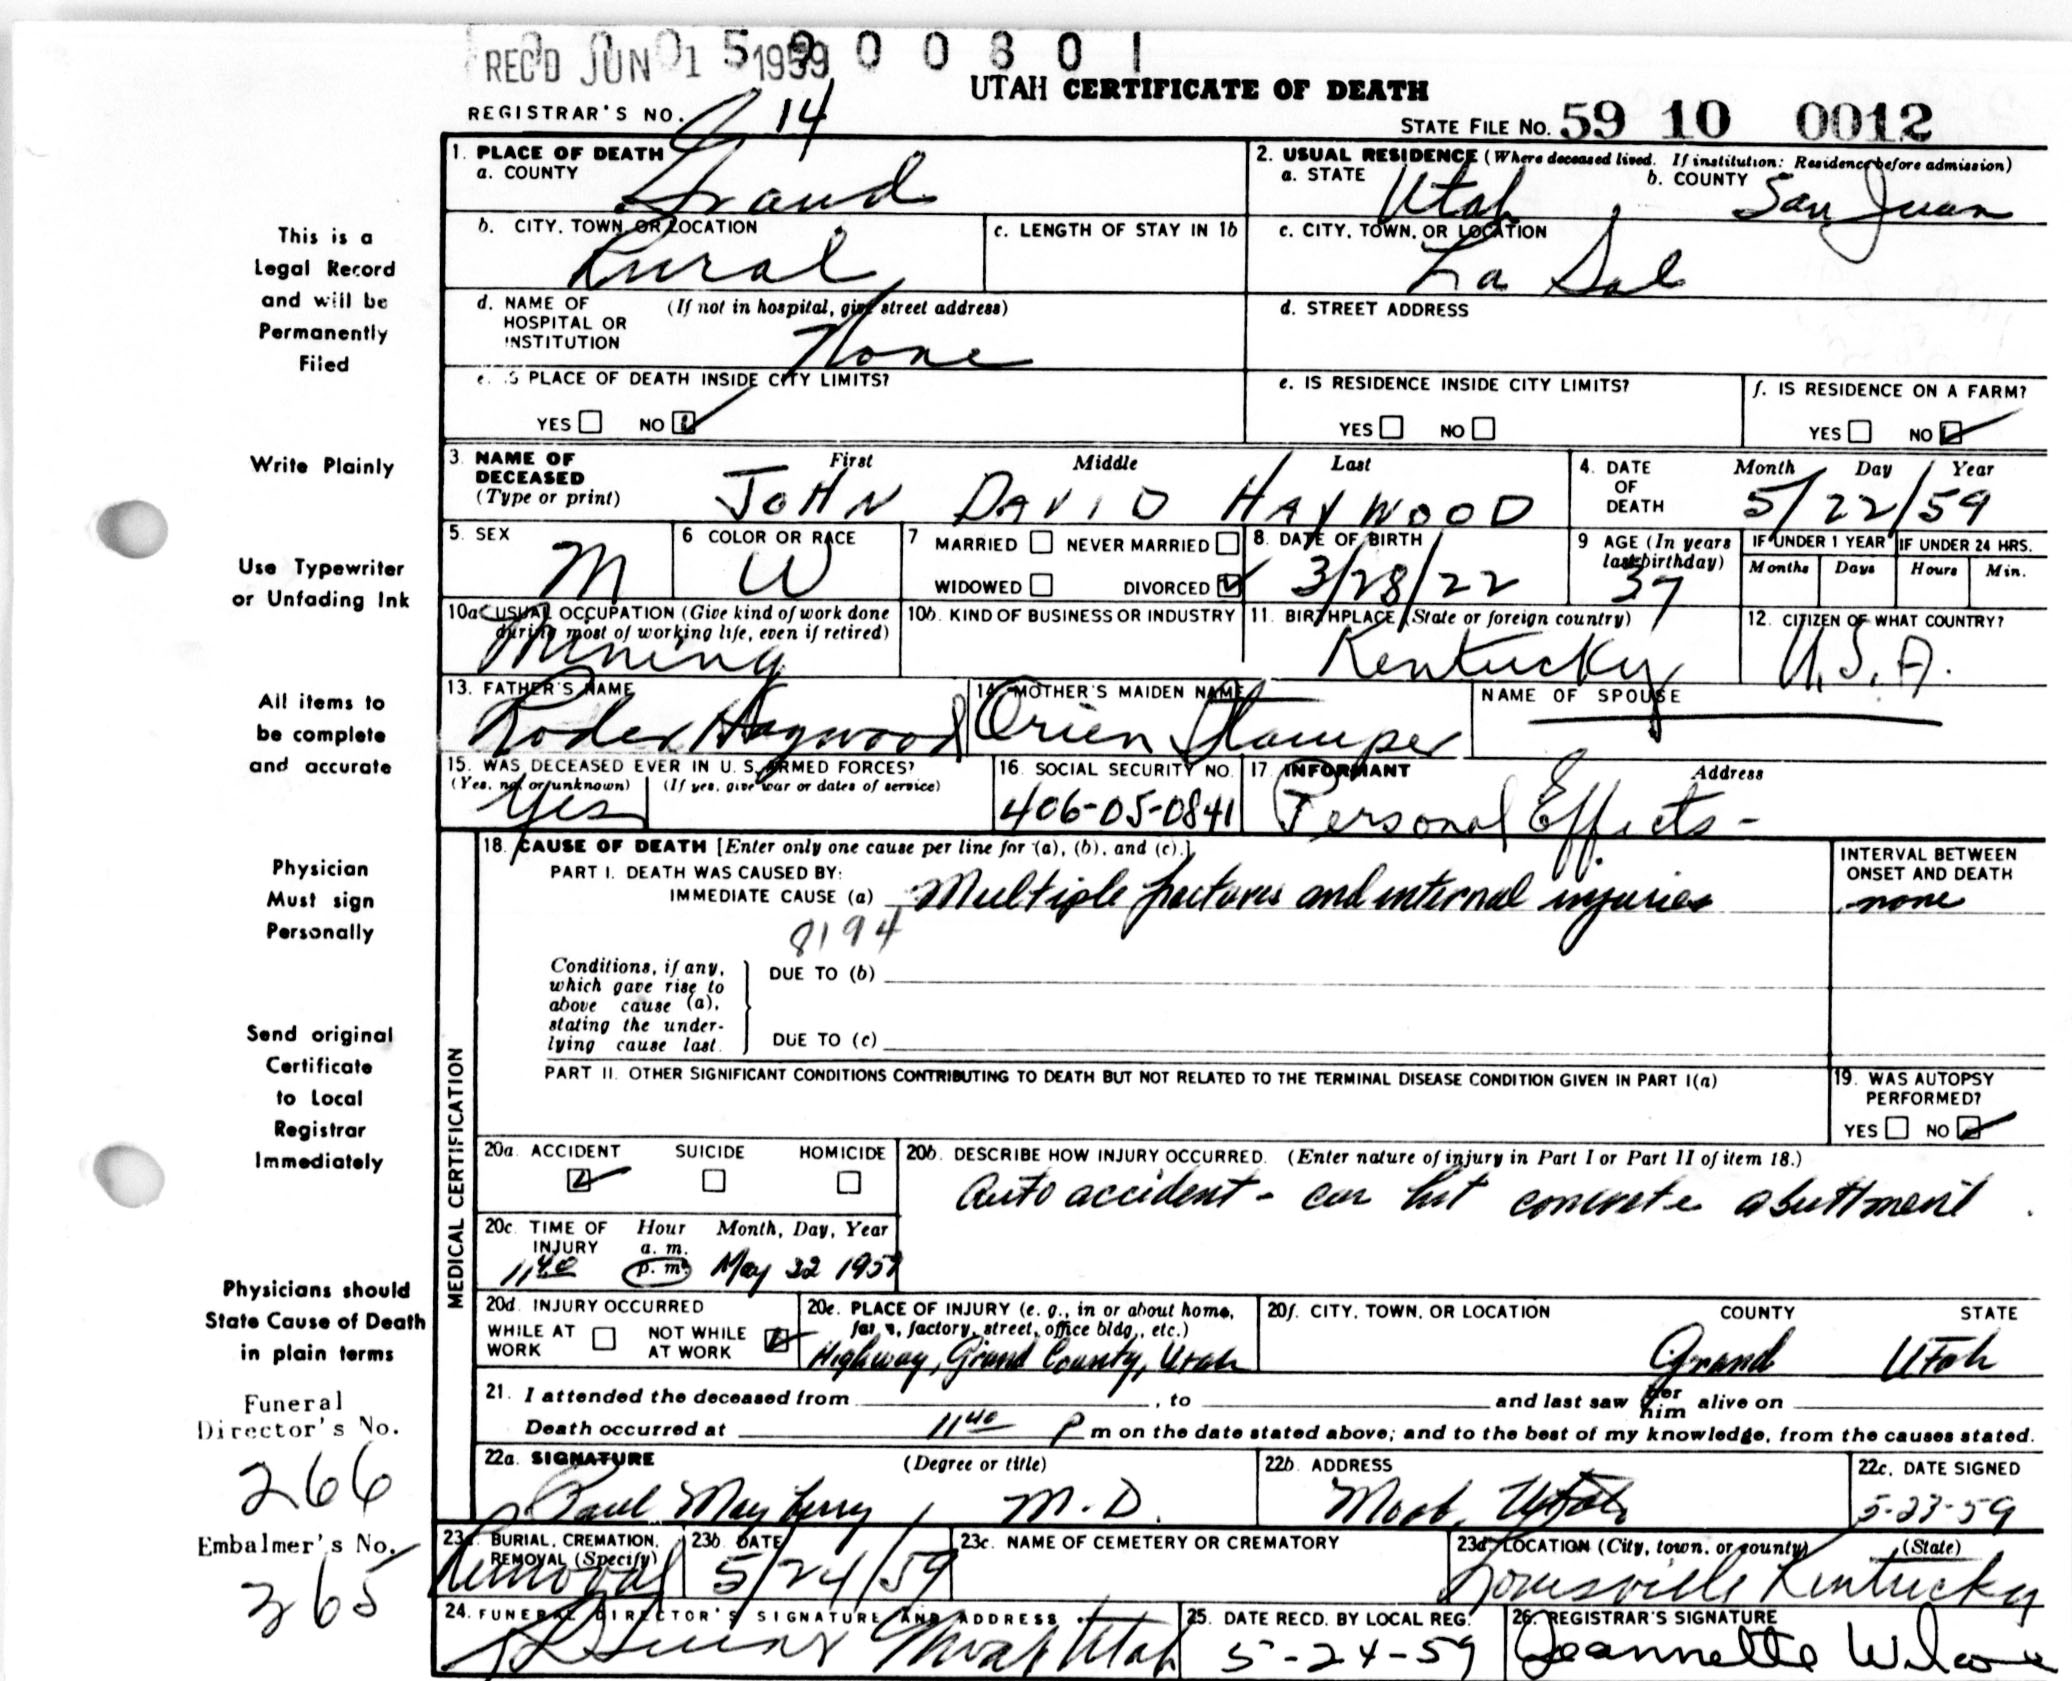 REC'D JUN 1 1959
0 0 0 5 9 0 0 8 0 1
UTAH CERTIFICATE OF DEATH
REGISTRAR'S NO. 14
STATE FILE NO. 59 10 0012
1. PLACE OF DEATH
a. COUNTY
Grand
2. USUAL RESIDENCE (Where deceased lived. If institution: Residence before admission)
a. STATE Utah b. COUNTY San Juan
This is a
Legal Record
and will be
Permanently
Filed
b. CITY, TOWN, OR LOCATION
Rural
c. LENGTH OF STAY IN 1b
c. CITY, TOWN, OR LOCATION
La Sal
d. NAME OF HOSPITAL OR INSTITUTION (If not in hospital, give street address)
None
d. STREET ADDRESS
e. IS PLACE OF DEATH INSIDE CITY LIMITS?
YES NO
e. IS RESIDENCE INSIDE CITY LIMITS?
YES NO
f. IS RESIDENCE ON A FARM?
YES NO
Write Plainly
3. NAME OF DECEASED (Type or print)
First Middle Last
JOHN DAVID HAYWOOD
4. DATE OF DEATH
Month Day Year
5/22/59
Use Typewriter
or Unfading Ink
5. SEX
M
6 COLOR OR RACE
W
7 MARRIED NEVER MARRIED
WIDOWED DIVORCED
8. DATE OF BIRTH
3/28/22
9 AGE (In years last birthday)
37
IF UNDER 1 YEAR IF UNDER 24 HRS.
Months Days Hours Min.
10a USUAL OCCUPATION (Give kind of work done
during most of working life, even if retired)
Mining
10b. KIND OF BUSINESS OR INDUSTRY
11. BIRTHPLACE (State or foreign country)
Kentucky
12. CITIZEN OF WHAT COUNTRY?
U.S.A.
All items to
be complete
and accurate
13. FATHER'S NAME
Roder Haywood
14. MOTHER'S MAIDEN NAME
Orien Stamper
NAME OF SPOUSE
15. WAS DECEASED EVER IN U. S. ARMED FORCES?
(Yes, no, or unknown) (If yes, give war or dates of service)
Yes
16. SOCIAL SECURITY NO.
406-05-0841
17. INFORMANT Address
Personal Effects -
Physician
Must sign
Personally
MEDICAL CERTIFICATION
18. CAUSE OF DEATH [Enter only one cause per line for (a), (b), and (c).]
PART I. DEATH WAS CAUSED BY:
IMMEDIATE CAUSE (a) Multiple fractures and internal injuries
8194
INTERVAL BETWEEN
ONSET AND DEATH
none
Conditions, if any,
which gave rise to
above cause (a),
stating the under-
lying cause last.
DUE TO (b)
DUE TO (c)
Send original
Certificate
to Local
Registrar
Immediately
PART II. OTHER SIGNIFICANT CONDITIONS CONTRIBUTING TO DEATH BUT NOT RELATED TO THE TERMINAL DISEASE CONDITION GIVEN IN PART I(a)
19. WAS AUTOPSY
PERFORMED?
YES NO
20a. ACCIDENT SUICIDE HOMICIDE
20b. DESCRIBE HOW INJURY OCCURRED. (Enter nature of injury in Part I or Part II of item 18.)
Auto accident - car hit concrete abuttment.
20c. TIME OF INJURY Hour Month, Day, Year
a. m.
11 40 p. m. May 22 1959
Physicians should
State Cause of Death
in plain terms
20d. INJURY OCCURRED
WHILE AT WORK NOT WHILE AT WORK
20e. PLACE OF INJURY (e. g., in or about home,
farm, factory, street, office bldg., etc.)
Highway, Grand County, Utah
20f. CITY, TOWN, OR LOCATION COUNTY STATE
Grand Utah
21. I attended the deceased from , to and last saw her him alive on
Death occurred at 11 40 P m on the date stated above; and to the best of my knowledge, from the causes stated.
22a. SIGNATURE (Degree or title)
Paul Mayberry, M.D.
22b. ADDRESS
Moab, Utah
22c. DATE SIGNED
5-23-59
Funeral
Director's No.
266
Embalmer's No.
365
23a. BURIAL, CREMATION,
REMOVAL (Specify)
Removal
23b. DATE
5/24/59
23c. NAME OF CEMETERY OR CREMATORY
23d. LOCATION (City, town, or county) (State)
Louisville Kentucky
24. FUNERAL DIRECTOR'S SIGNATURE AND ADDRESS
Moab Utah
25. DATE RECD. BY LOCAL REG.
5-24-59
26. REGISTRAR'S SIGNATURE
Jeannette Wilcox